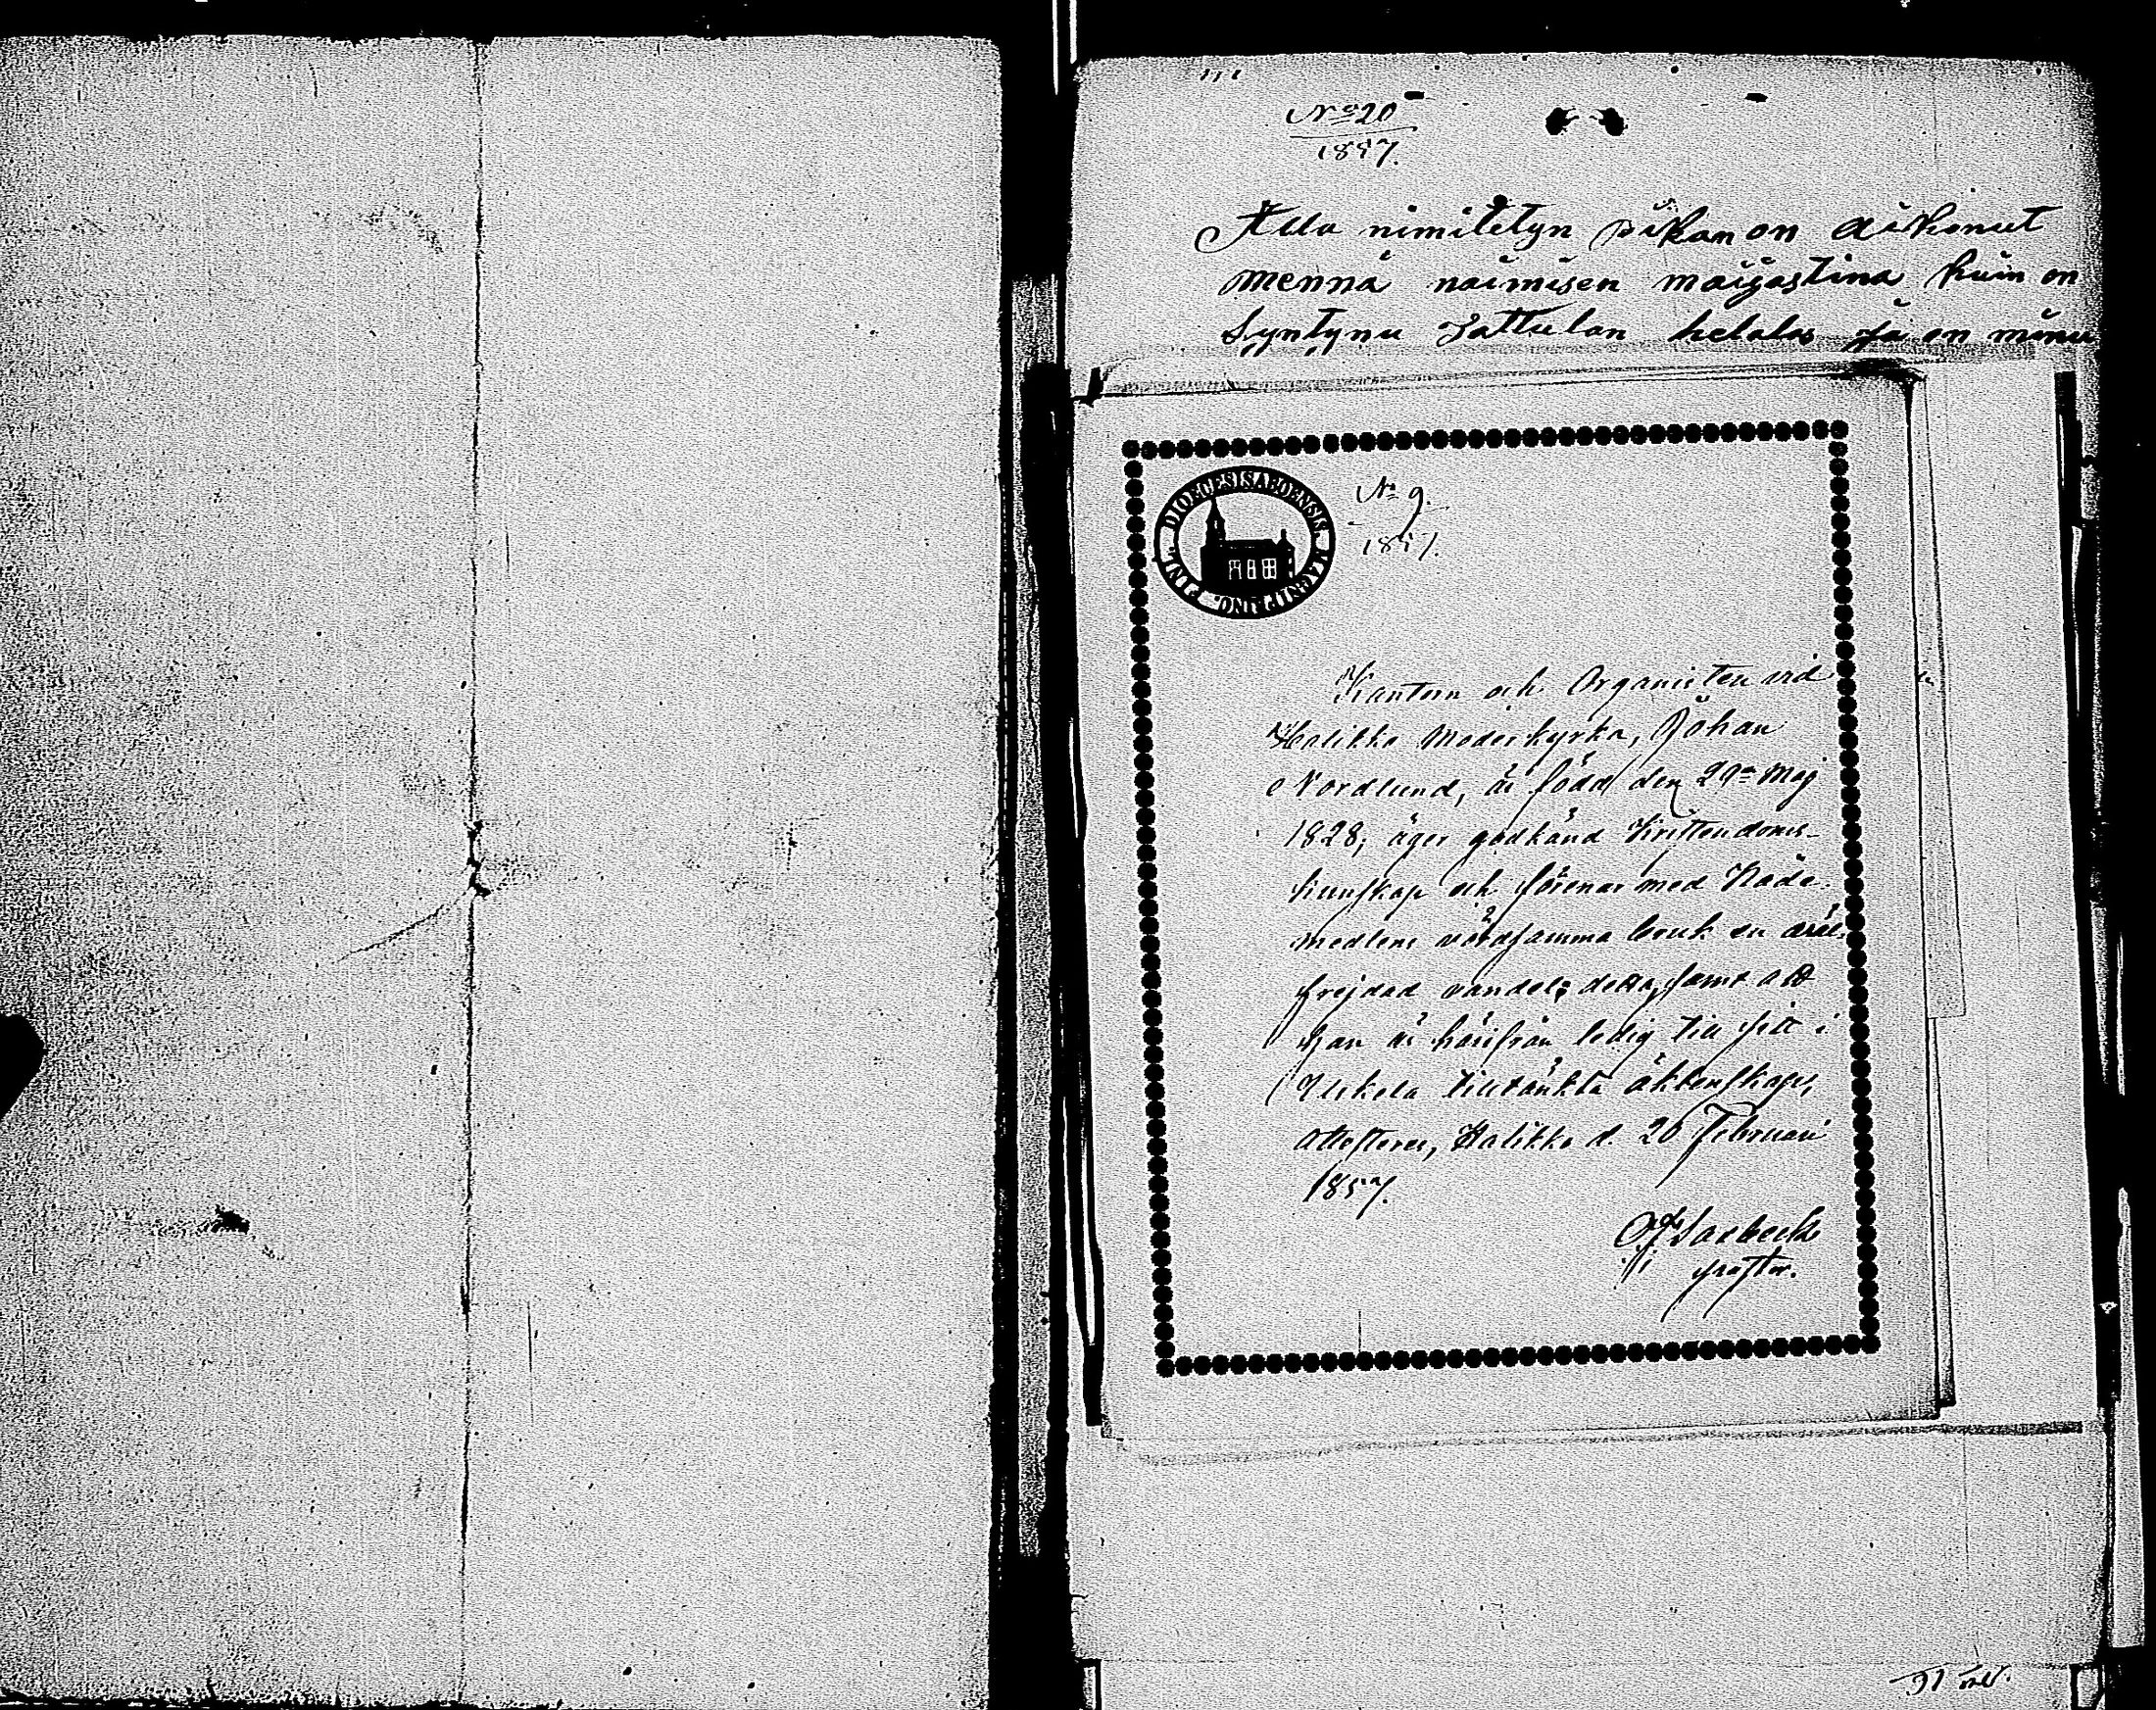 No 20
1857.
Alla nimitetyn pikan on aikonut
mennä naimisen maijastina kuin on
Syntynu Jattulan helalas ja on minu
DIOECESIS ABOENSIS MAGNI PRINC. FINL.
No 9.
1857.
Kantorn och Organisten vid
Halikko Moderkyrka, Johan
Nordlund, är född den 29de Maj
1828; äger godkänd Kristendoms-
kunskap och förenar med Nåde-
medlens vårdsamma bruk en ärel.
frejdad vandel; detta, samt att
han är härifrån ledig till sitt i
Uskela tilltänkta äktenskap,
attesteras, Halikko d. 26 Februari
1857.
prästor.